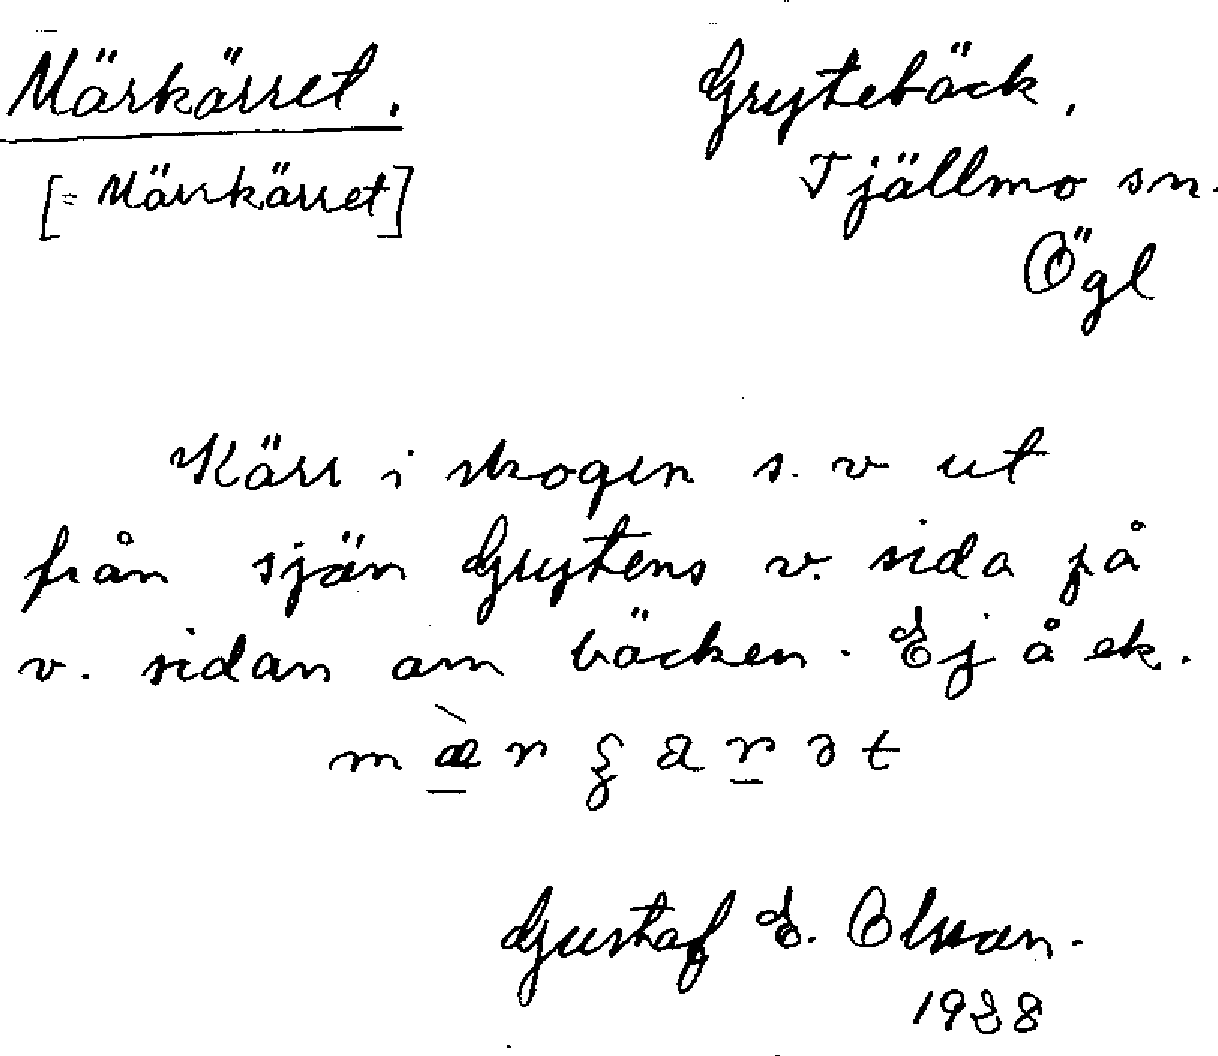 Märkärret.
[= Märrkärret]
Grytebäck,
Tjällmo sn.
Ögl
Kärr i skogen s. v ut
från sjön Grytens v. sida på
v. sidan om bäcken. Ej å ek.
Gustaf E. Olsson.